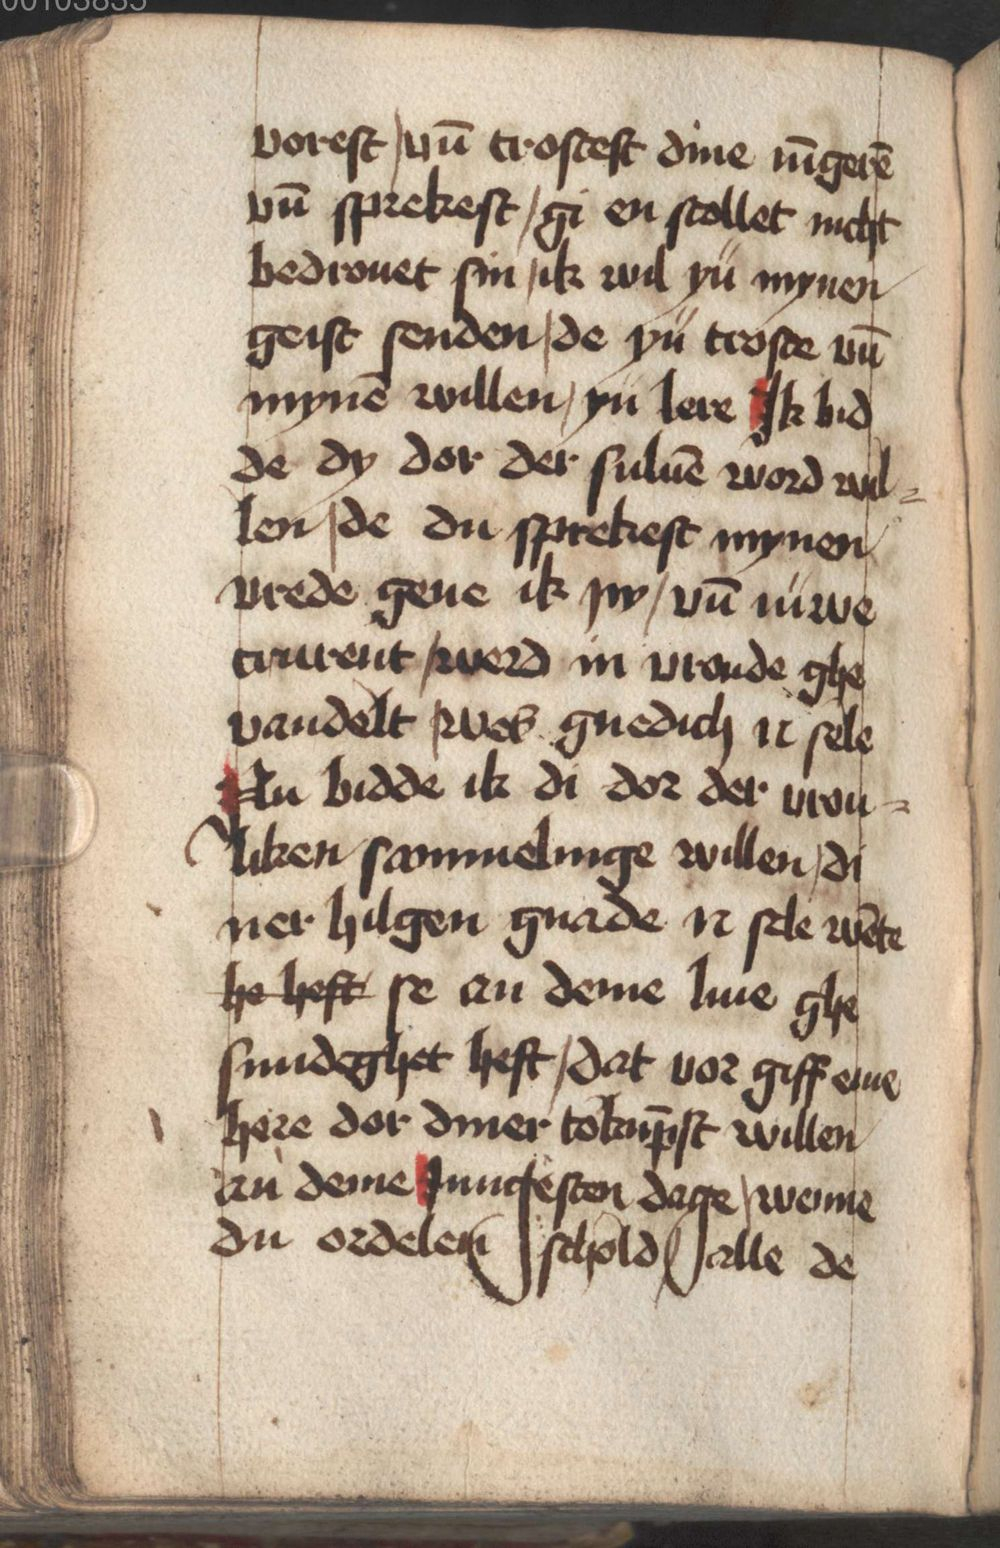 00103835
vorest / vn̄ trostest dine iūgerē
vn̄ sprekest / gi en scollet nicht
bedrouet sin / ik wil yü mynen
geist senden / de yü troste vn̄
mynē willen / yü lere Ik bid
de dy dor der suluē word wil=
len / de du sprekest mynen
vrede geue ik yw / vn̄ iüwe
trurent / werd in vroude ghe
vandelt / wes gnedich N sele
Nu bidde ik di dor der vrou=
liken sammelinge willen / di
ner hilgen gnade N sele wēte
he heft se an deme liue ghe
sundeghet heft / dat vor giff eme
here dor diner tokūpst willen
an deme Jungesten dage / wenne
du ordelen schold / alle de